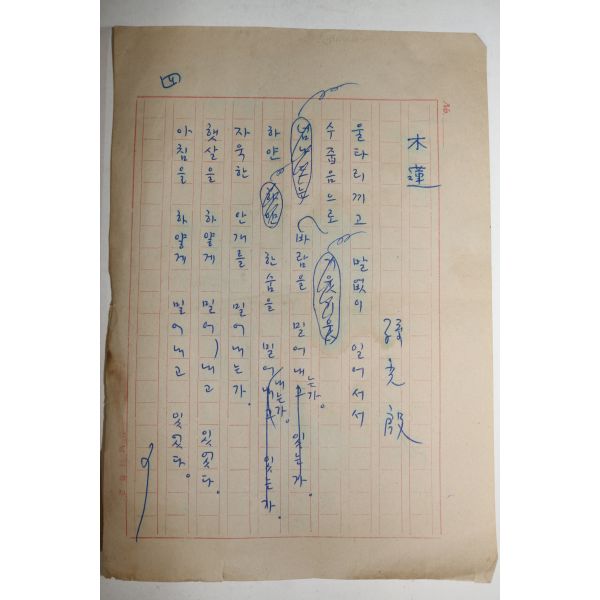 木蓮
孫光殷
울타리끼고 말없이 일어서서
수줍음으로
바람을 밀어내고 있는가.
는가.
하얀 한숨을 밀어내고 있는가.
내는가.
자욱한 안개를 밀어내는가.
햇살을 하얗게 밀어내고 있었다.
아침을 하얗게 밀어내고 있었다.